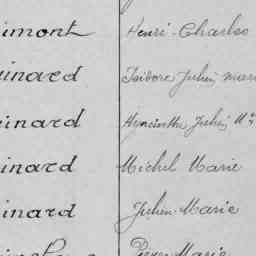 imont Henri-Charles
inard Isidore Julien Mari
inard Hyacinthe Julien M
inard Michel Marie
inard Julien-Marie
Pierre Marie